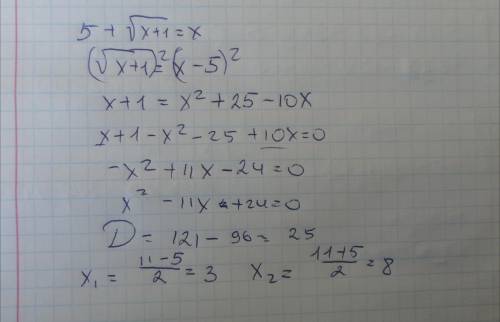 5 + √x+1 = x
(√x+1)² = (x - 5)²
x + 1 = x² + 25 - 10x
x + 1 - x² - 25 + 10x = 0
-x² + 11x - 24 = 0
x² - 11x + 24 = 0
D = 121 - 96 = 25
x₁ = (11-5)/2 = 3 x₂ = (11+5)/2 = 8